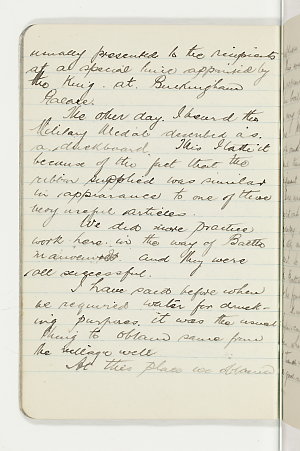 usually presented to the recipients
at a special time appointed by
the King. at. Buckingham
Palace.
The other day, I heard the
Military Medal described as
a duckboard. This I take it
because of the fact that the
ribbon supplied was similar
in appearance to one of these
very useful articles.
We did more practice
work here in the way of Battle
manoeuvres and they were
all successful.
I have said before when
we required water for drink-
ing purposes, it was the usual
thing to obtain same from
the village well.
At this place we obtained